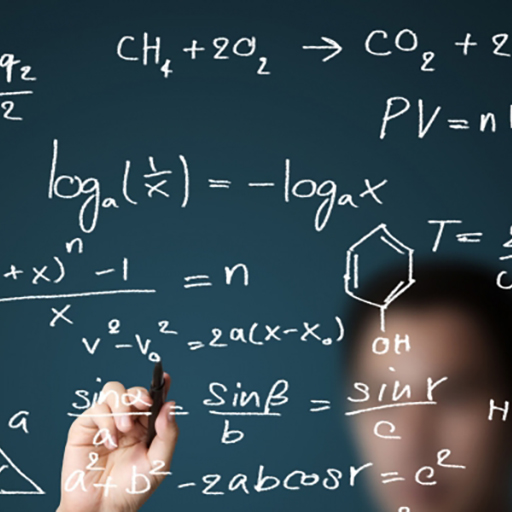 CH₄ + 2O₂ → CO₂ + 2
q₂
2
PV = n
logₐ(1/x) = -logₐx
T =
+x)ⁿ - 1 / x = n
v² - v₀² = 2a(x - x₀)
OH
a
sinα/a = sinβ/b = sin r/c
H
a² + b² - 2abcosr = c²